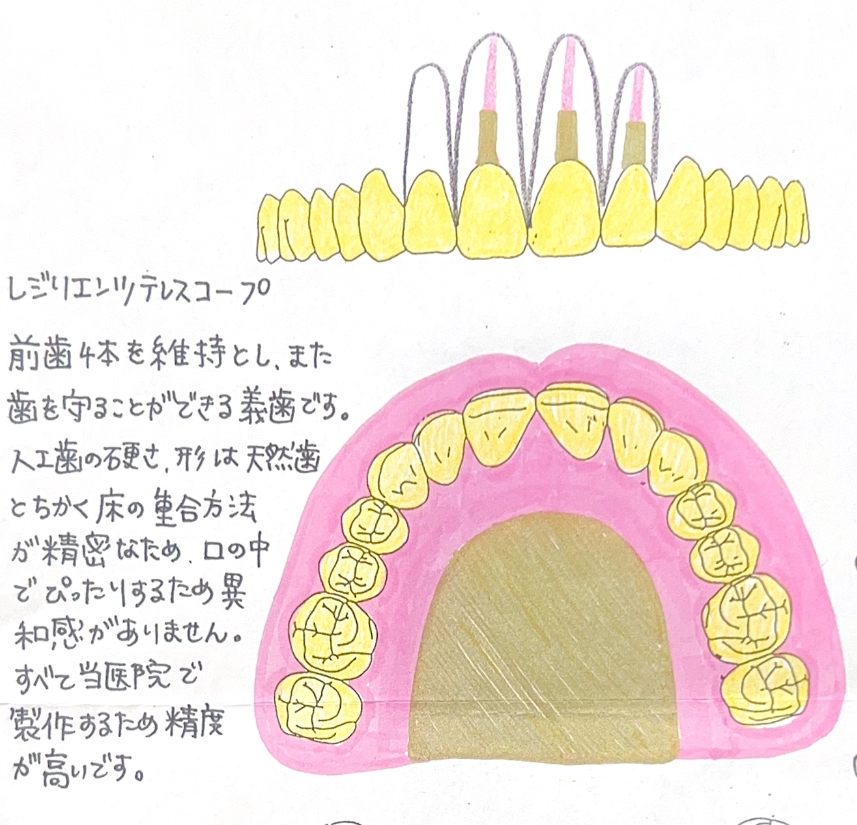 レジリエンツテレスコープ
前歯4本を維持とし、また
歯を守ることができる義歯です。
人工歯の硬さ、形は天然歯
とちかく床の重合方法
が精密なため、口の中
でぴったりするため異
和感がありません。
すべて当医院で
製作するため精度
が高いです。